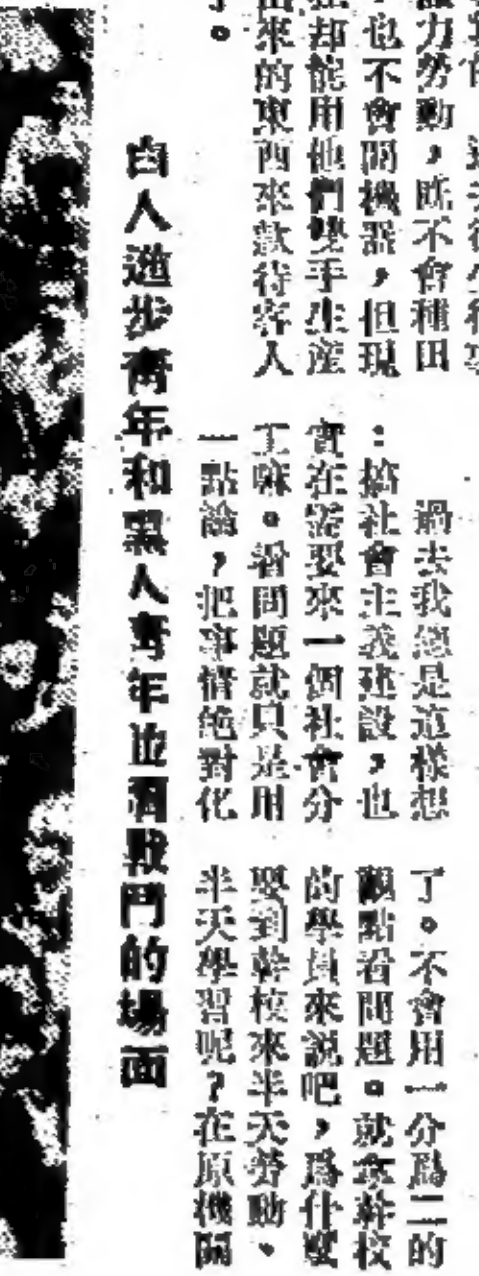 力勞動,既不會種田
也不會開機器,但現
却能用他們雙手生産
來的東西來款待客人
。
過去我總是這樣想
:搞社會主義建設,也
實在需要來一個社會分
工嘛。看問題就只是用
一點論,把事情絕對化
了。不會用一分爲二的
觀點看問題。就拿幹校
的學員來説吧,爲什麽
要到幹校來半天勞動、
半天學習呢?在原機關
白人進步青年和黑人青年並肩戰鬥的場面